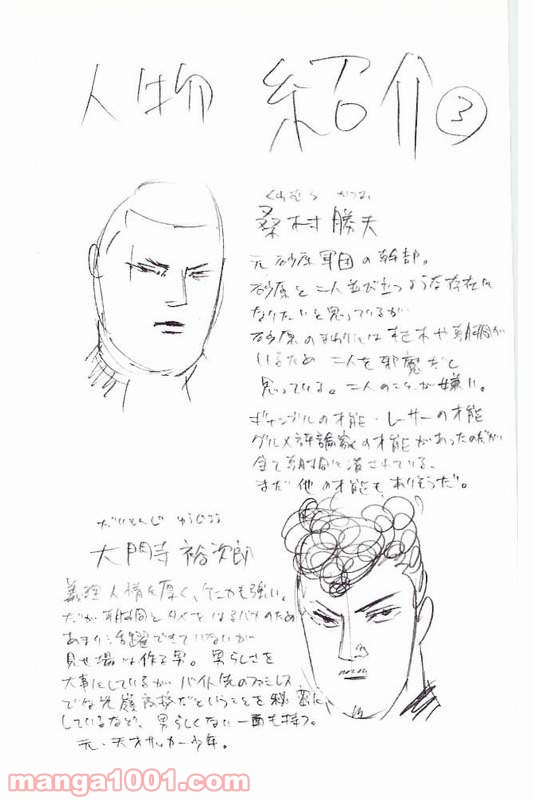 人物 紹介③
くわむら かつお
桑村 勝夫
元 砂原軍団の幹部。
砂原と二人並び立つような存在に
なりたいと思っているが
砂原のまわりには
いるため 二人を邪魔だと
思っている。二人のことが嫌い。
ギャンブルの才能・レーサーの才能
グルメ評論家の才能があったのだが
全て 潰されている。
まだ他の才能もありそうだ。
だいもんじ ゆうじろう
大門寺 裕次郎
義理人情に厚く、ケンカも強い。
だが
あまり活躍できていないが
見せ場は作る男。男らしさを
大事にしているが バイト先のファミレス
では だということを秘密に
しているなど、男らしくない一面も持つ。
元・天才サッカー少年。
manga1001.com